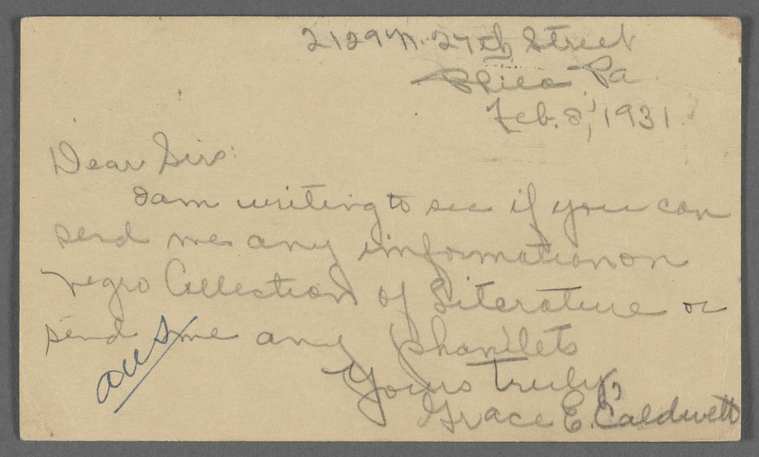 2129 N. 27th Street
Phila, Pa
Feb. 8, 1931.
Dear Sirs:
I am writing to see if you can
send me any information on
negro Collection of Literature or
send me any phamlets
Yours Truly,
Grace E. Caldwell
ans